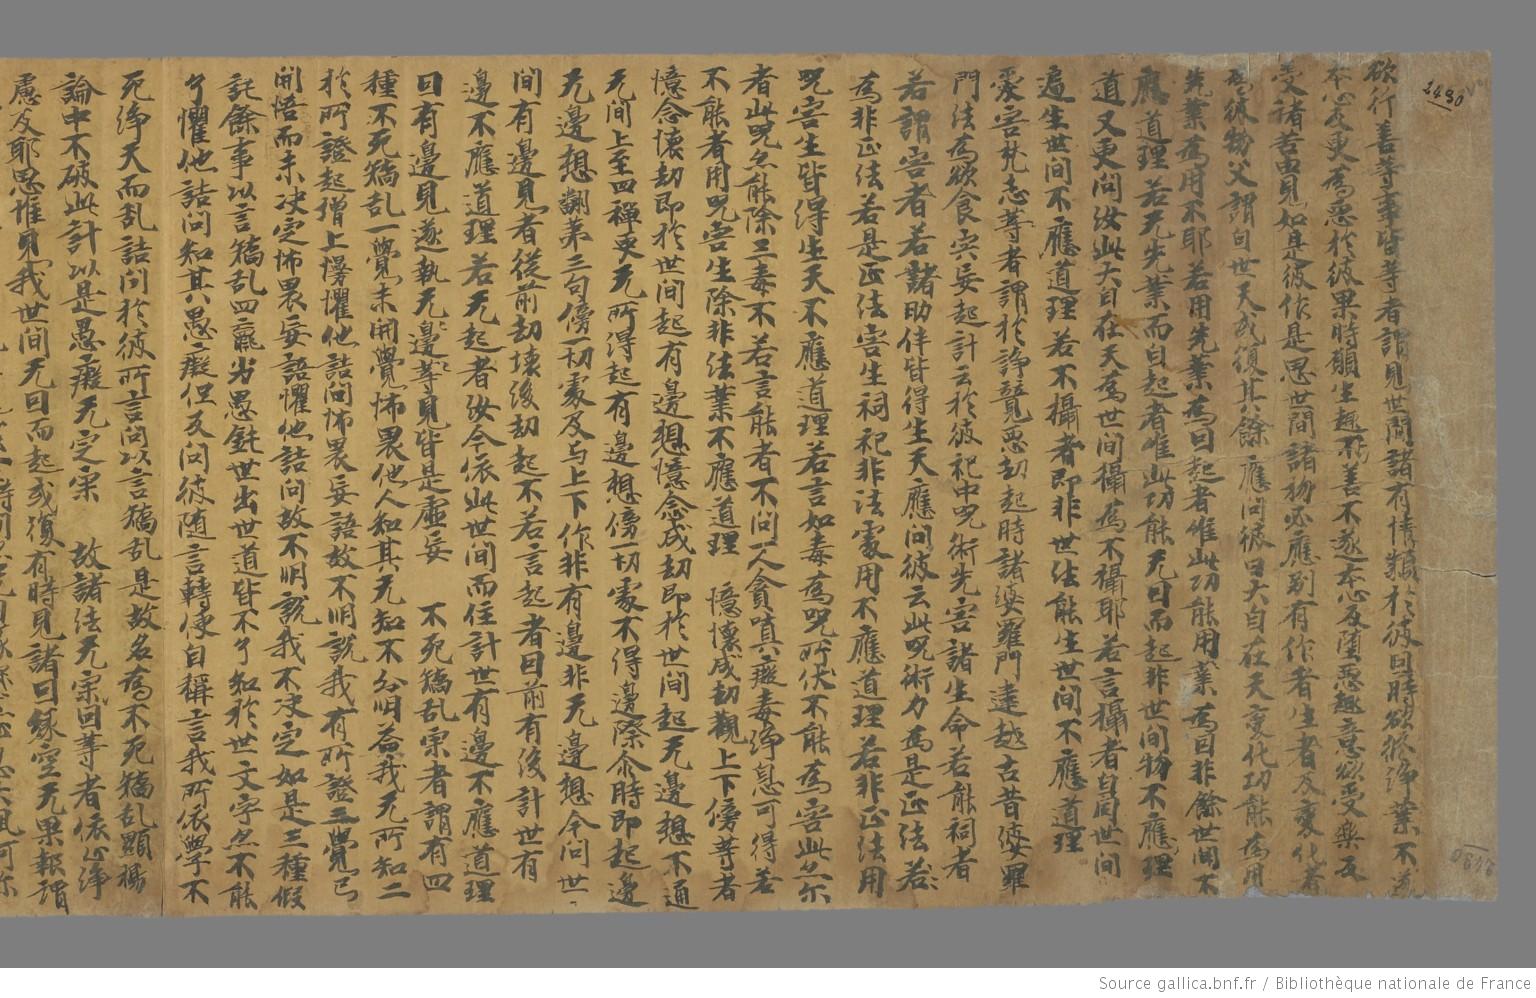 2490
欲行善等事皆等者謂見世間諸有情類於彼因時欲修淨業不遂
本心反更為惡於彼果時願生趣不善不遂本心反墮惡趣意欲受樂反
受諸苦由見如是彼作是思世間諸物必應別有作者生者及變化者
為彼物父謂自世天或復其餘 應問彼曰大自在天變化功能為用
先業為用不耶若用先業為因起者唯此功能用業為因非餘世間不
應道理若无先業而自起者唯此功能无因而起非世間物不應理
道又更問汝此大自在天為世間攝為不攝耶若言攝者自同世間
遍生世間不應道理若不攝者即非世法能生世間不應道理
處害梵志等者謂於諍競惡劫起時諸婆羅門違越古昔婆羅
門法為欲食宍妄起計云於彼祀中呪術先害諸生命若能祠者
若謂害者若諸助伴皆得生天應問彼云此呪術力為是正法若
為非正法若是正法害生祠祀非法處用不應道理若非正法用
呪害生皆得生天不應道理若言如毒為呪所伏不能為害此亦尒
者此呪亦能除三毒不若言能者不問一人貪嗔癡毒淨息可得若
不能者用呪害生除非法業不應道理 憶懷成劫觀上下傍等者
憶念懷劫即於世間起有邊想憶念成劫即於世間起无邊想不通
无間上至四禪更无所得起有邊想傍一切處不得邊際尒時即起邊
无邊想翻苐三句傍一切處及与上下作非有邊非无邊想今問世
間有邊見者從前劫壞後劫起不若言起者因前有後計世有
邊不應道理若无起者汝今依此世間而住計世有邊不應道理
曰有邊見遂執无邊等見皆是虛妄 不死矯乱宗者謂有四
種不死矯乱一覺未開覺怖畏他人知其无知不分明荅我无所知二
於所證起增上慢懼他詰問怖畏妄語故不明說我有所證三覺已
開悟而未决定怖畏妄語懼他詰問故不明說我不决定如是三種假
託餘事以言矯乱四羸劣愚鈍世出世道皆不了知於世文字亦不能
了懼他詰問知其愚癡但反問彼随言轉便自稱言我所依學不
死淨天而乱詰問於彼所言問以言矯乱是故名為不死矯乱顯揚
論中不破此計以是愚癡无定宗 故諸法无宗因等者依心淨
慮及耶思惟見我世間无因而起或復有時見諸因緣空无果報謂